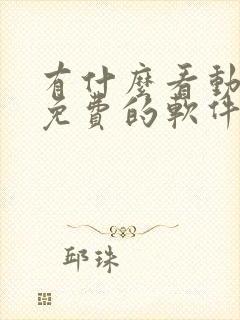 有什麼看動
免費的軟件
邱珠